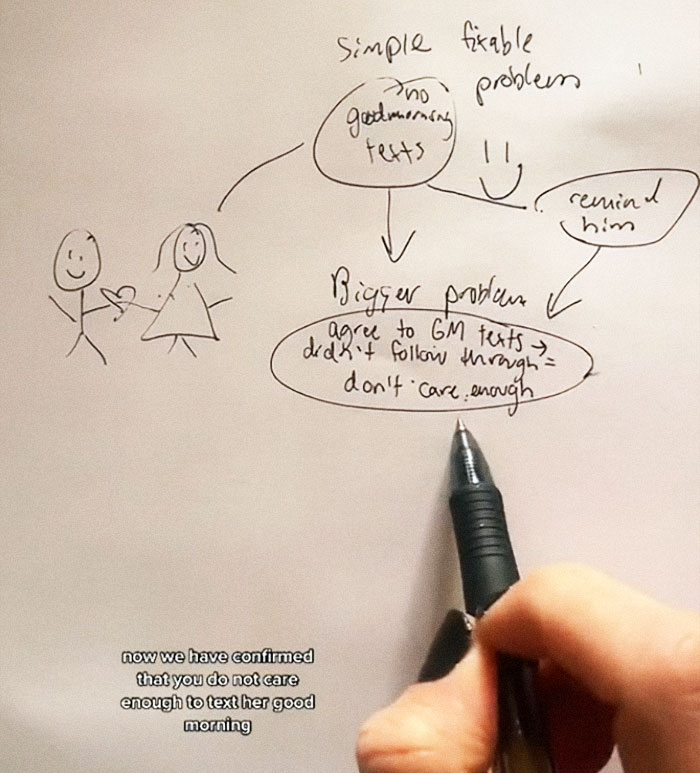 simple fixable
problem
no
goodmorning
texts
remind
him
Bigger problem
agree to GM texts →
didn't follow through =
don't care enough
now we have confirmed
that you do not care
enough to text her good
morning